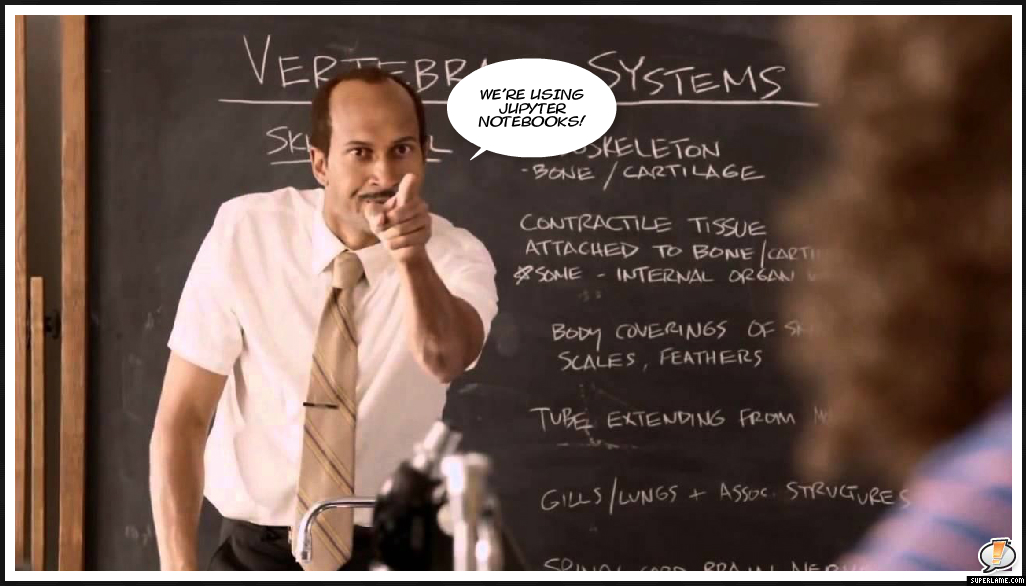 VERTEBRA SYSTEMS
WE'RE USING
JUPYTER
NOTEBOOKS!
SKELETON
- BONE / CARTILAGE
CONTRACTILE TISSUE
ATTACHED TO BONE/CARTI
*SOME - INTERNAL ORGAN
BODY COVERINGS OF
SCALES, FEATHERS
TUBE EXTENDING FROM
GILLS/LUNGS + ASSOC. STRUCTURES
SPINAL CORD BRAIN
SUPERLAME.COM